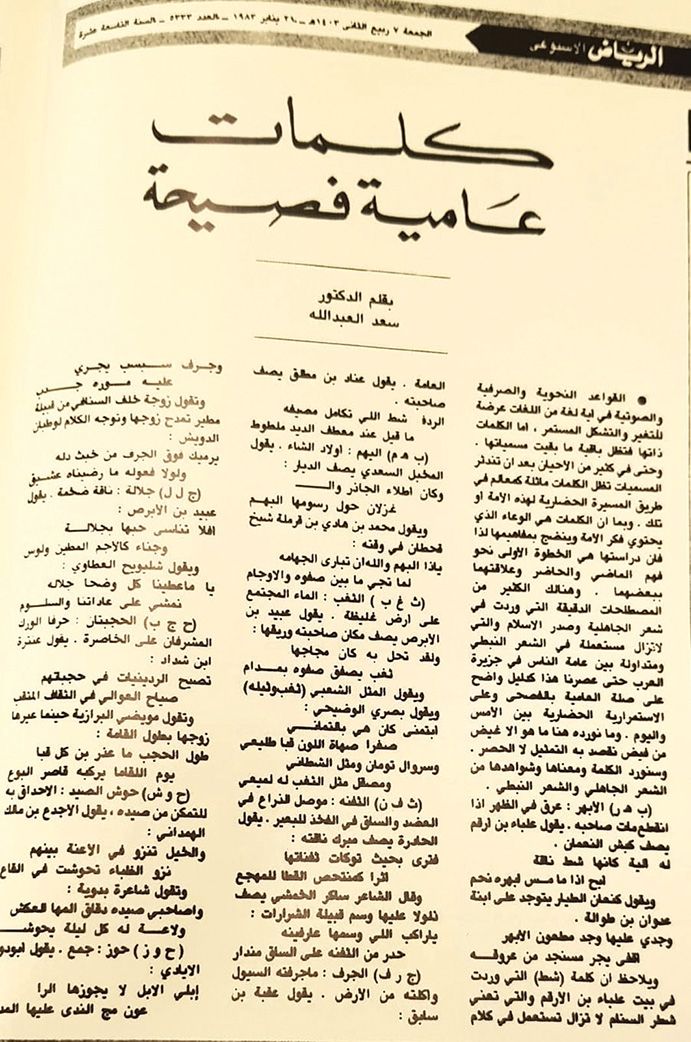 الرياض الاسبوعي
الجمعة ٧ ربيع الثاني ١٤٠٣هـ ـ ٢١ يناير ١٩٨٣ ـ العدد ٥٣٣٣ ـ السنة التاسعة عشرة
كلمات
عامية فصيحة
بقلم الدكتور
سعد العبدالله
● القواعد النحوية والصرفية
والصوتية في اية لغة من اللغات عرضة
للتغير والتشكل المستمر ، اما الكلمات
ذاتها فتظل باقية ما بقيت مسمياتها .
وحتى في كثير من الأحيان بعد ان تندثر
المسميات تظل الكلمات ماثلة كمعالم في
طريق المسيرة الحضارية لهذه الأمة او
تلك . وبما ان الكلمات هي الوعاء الذي
يحتوي فكر الأمة وينضح بمفاهيمها لذا
فان دراستها هي الخطوة الأولى نحو
فهم الماضي والحاضر وعلاقتهما
ببعضهما . وهنالك الكثير من
المصطلحات الدقيقة التي وردت في
شعر الجاهلية وصدر الاسلام والتي
لاتزال مستعملة في الشعر النبطي
ومتداولة بين عامة الناس في جزيرة
العرب حتى عصرنا هذا كدليل واضح
على صلة العامية بالفصحى وعلى
الاستمرارية الحضارية بين الأمس
واليوم . وما نورده هنا ما هو الا غيض
من فيض نقصد به التمثيل لا الحصر .
وسنورد الكلمة ومعناها وشواهدها من
الشعر الجاهلي والشعر النبطي .
(ب هـ ر) الأبهر : عرق في الظهر اذا
انقطع مات صاحبه . يقول علباء بن ارقم
يصف كبش النعمان .
له الية كانها شط ناقة
ابح اذا ما مس ابهره نحم
ويقول كنعان الطيار يتوجد على ابنة
عدوان بن طوالة .
وجدي عليها وجد مطعون الأبهر
اقفى يجر مسنجد من عروقه
ويلاحظ ان كلمة (شط) التي وردت
في بيت علباء بن الأرقم والتي تعني
شطر السنام لا تزال تستعمل في كلام
العامة . يقول عناد بن مطلق يصف
صاحبته .
الردف شط اللي تكامل مصيفه
ما قيل عند معطف الديد ملطوط
(ب هـ م) البهم : اولاد الشاء . يقول
المخبل السعدي يصف الديار :
وكان اطلاء الجاذر والـ
غزلان حول رسومها البهم
ويقول محمد بن هادي بن قرملة شيخ
قحطان في وقته :
ياذا البهم والله ان تبارى الجهامه
لما تجي ما بين صفوه والاوجام
(ث غ ب ) الثغب : الماء المجتمع
على ارض غليظة . يقول عبيد بن
الأبرص يصف مكان صاحبته وريقها :
ولقد تحل به كان مجاجها
ثغب يصفق صفوه بمدام
ويقول المثل الشعبي (ثغب وثيله)
ويقول بصري الوضيحي :
ابتمنى كان هي بالتماني
صفرا صهاة اللون قبا طليعي
وسروال تومان ومثل الشطاني
ومصقل مثل الثغب له لميعي
(ث ف ن) الثفنه : موصل الذراع في
العضد والساق في الفخذ للبعير . يقول
الحادرة يصف مبرك ناقته :
فترى بحيث توكات ثفناتها
اثرا كمنتحص القطا للمهجع
وقال الشاعر ساكر الخمشي يصف
ذلولا عليها وسم قبيلة الشرارات :
ياراكب اللي وسمها عارفينه
حدر من الثفنه على الساق مندار
(ج ر ف) الجرف : ماجرفته السيول
واكلته من الأرض . يقول عقبة بن
سابق :
وجرف سبسب يجري
عليه موره جدب
وتقول زوجة خلف السنافي من قبيلة
مطير تمدح زوجها وتوجه الكلام لوطبان
الدويش :
يرميك فوق الجرف من خبث دله
ولولا فعوله ما رضيناه عشيق
(ج ل ل) جلالة : ناقة ضخمة . يقول
عبيد بن الأبرص :
افلا تناسى حبها بجلالة
وجناء كالأجم المطين ولوس
ويقول شليويح العطاوي :
يا ماعطينا كل وضحا جلاله
نمشي على عاداتنا والسلوم
(ح ج ب) الحجبتان : حرفا الورك
المشرفان على الخاصرة . يقول عنترة
ابن شداد :
تصيح الردينيات في حجباتهم
صياح العوالي في الثقاف المثقب
وتقول مويضي البرازية حينما عيرها
زوجها بطول القامة :
طول الحجب ما عذر بن كل قبا
يوم اللقا ما يركبه قاصر البوع
(ح و ش) حوش الصيد : الاحداق به
للتمكن من صيده ، يقول الأجدع بن مالك
الهمداني :
والخيل تنزو في الأعنة بينهم
نزو الظباء تحوشت في القاع
وتقول شاعرة بدوية :
واصاحبي صيده دقاق المها العكش
ولاعــة له كل ليلة يحوشــ
(ح و ز) حوز : جمع . يقول ابودو
الايادي :
إبلي الابل لا يحوزها الرا
عون مج الندى عليها المد